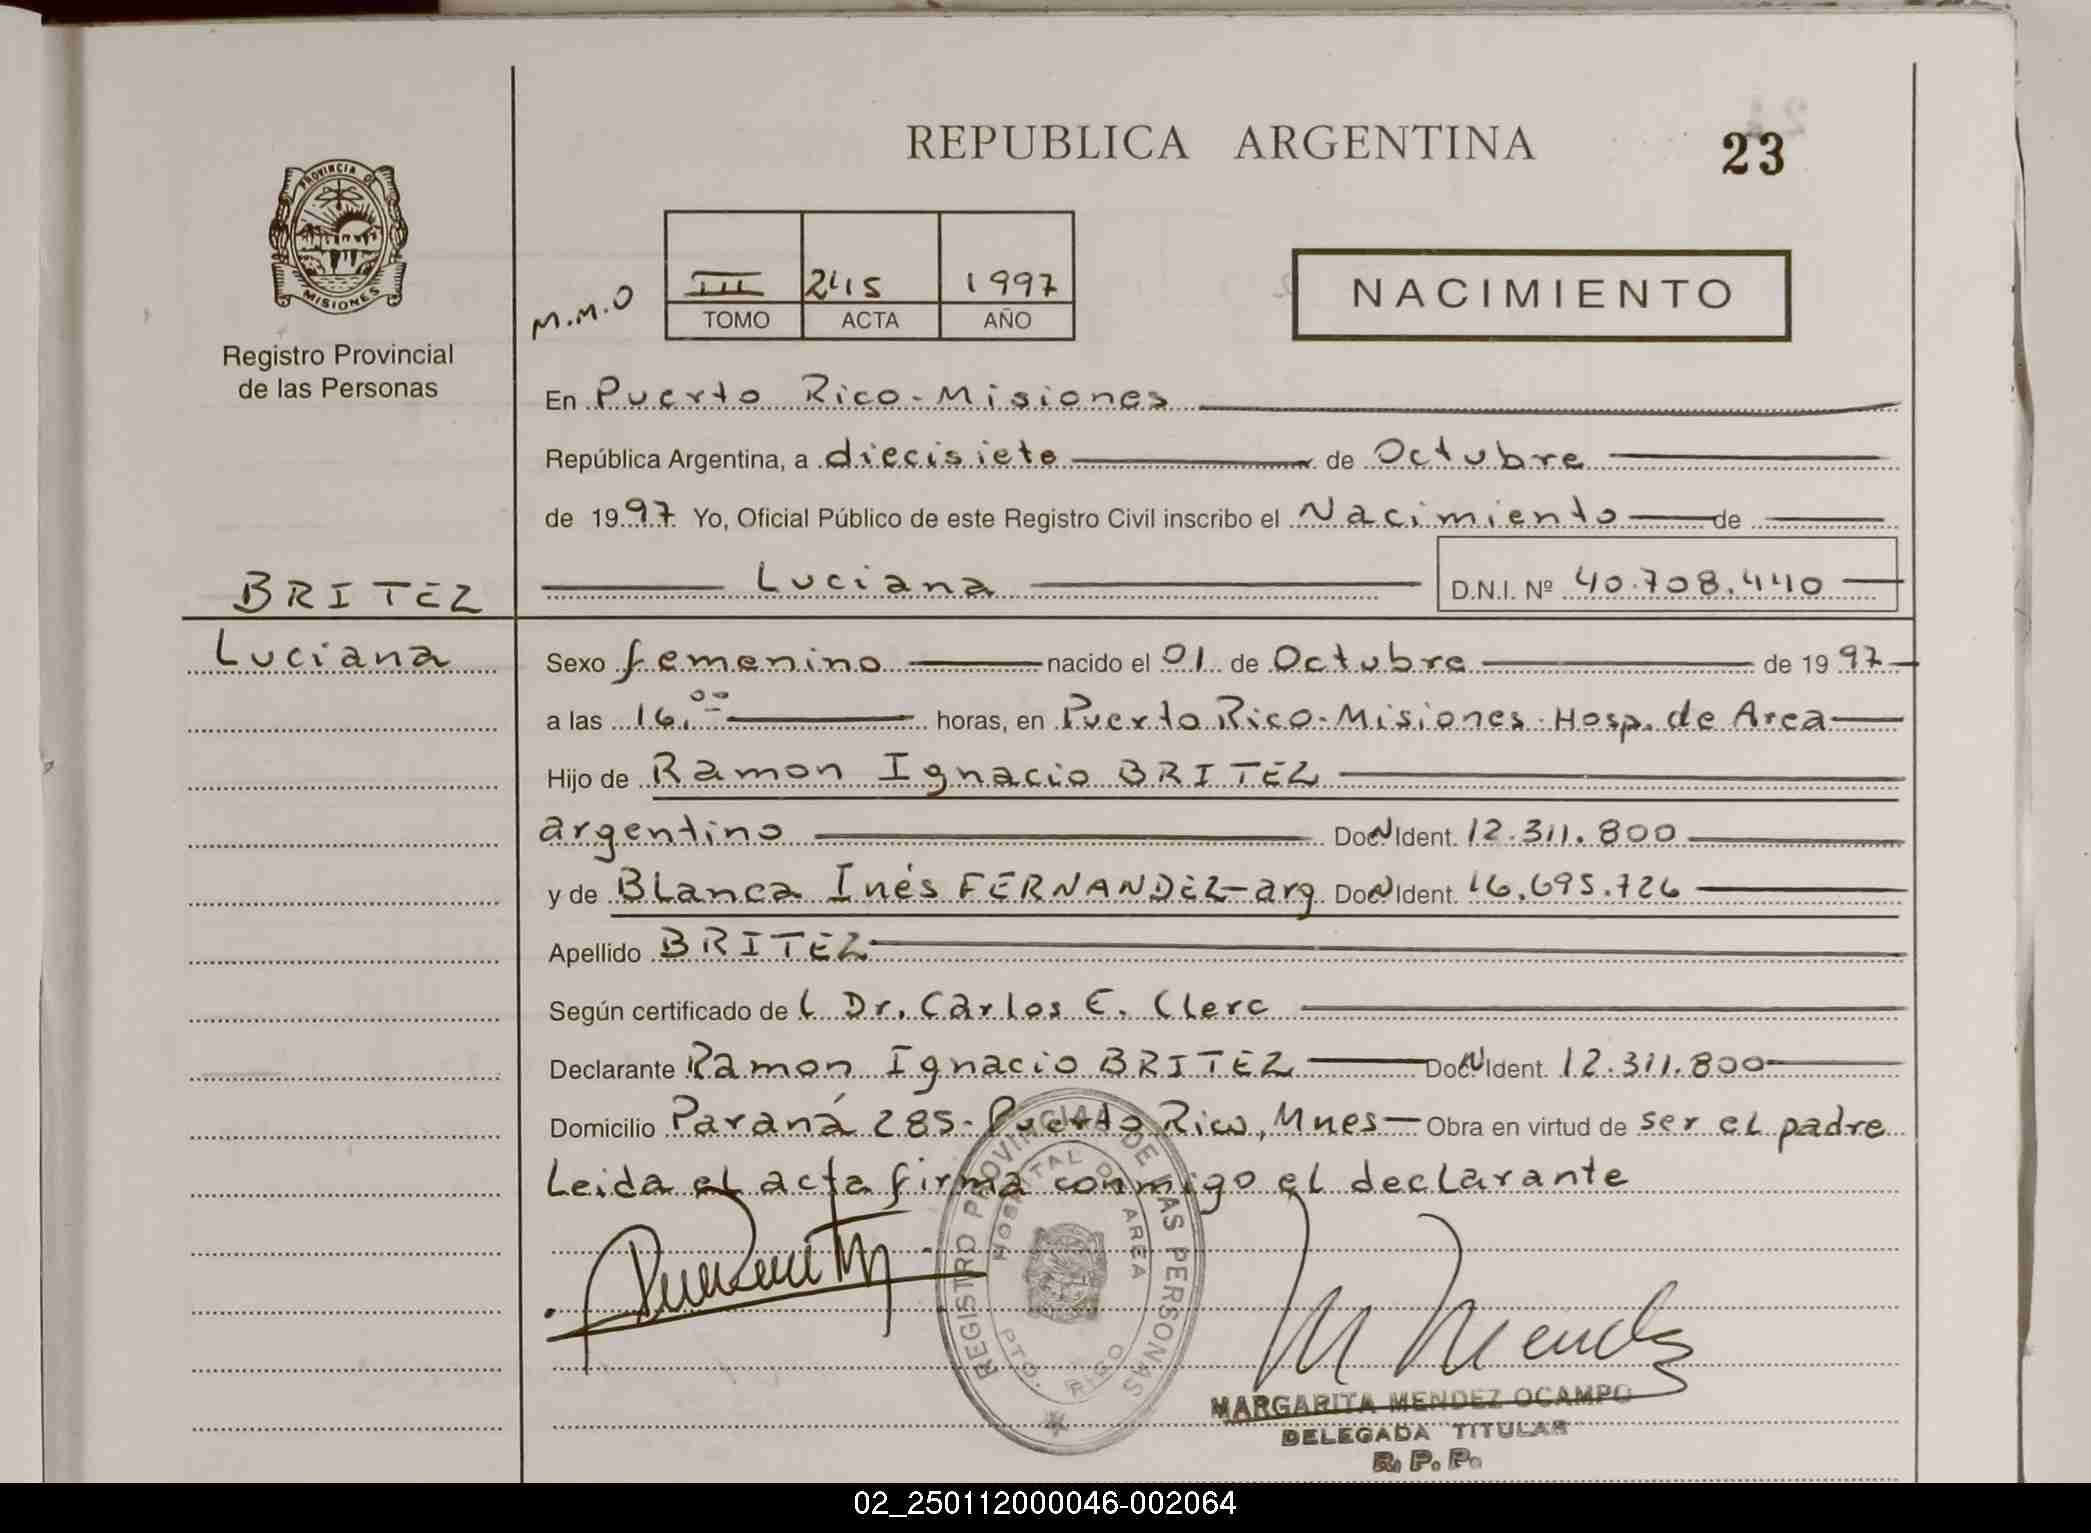 REPUBLICA ARGENTINA
23
PROVINCIA DE
MISIONES
Registro Provincial
de las Personas
M.M.O
III 245 1997
TOMO ACTA AÑO
NACIMIENTO
En Puerto Rico-Misiones
República Argentina, a diecisiete de Octubre
de 1997 Yo, Oficial Público de este Registro Civil inscribo el Nacimiento de
BRITEZ
Luciana D.N.I. Nº 40.708.440
Luciana
Sexo femenino nacido el 01 de Octubre de 1997
a las 16.00 horas, en Puerto Rico-Misiones-Hosp. de Area
Hijo de Ramon Ignacio BRITEZ
argentino DocN Ident. 12.311.800
y de Blanca Inés FERNANDEZ-arg DocN Ident. 16.695.726
Apellido BRITEZ
Según certificado de l Dr. Carlos E. Clerc
Declarante Ramon Ignacio BRITEZ DocN Ident. 12.311.800
Domicilio Paraná 285-Puerto Rico, Mnes- Obra en virtud de ser el padre
Leida el acta firma conmigo el declarante
REGISTRO PROVINCIAL DE LAS PERSONAS
HOSPITAL DE AREA
PTO. RICO
M Mendez
MARGARITA MENDEZ OCAMPO
DELEGADA TITULAR
R. P. P.
02_250112000046-002064